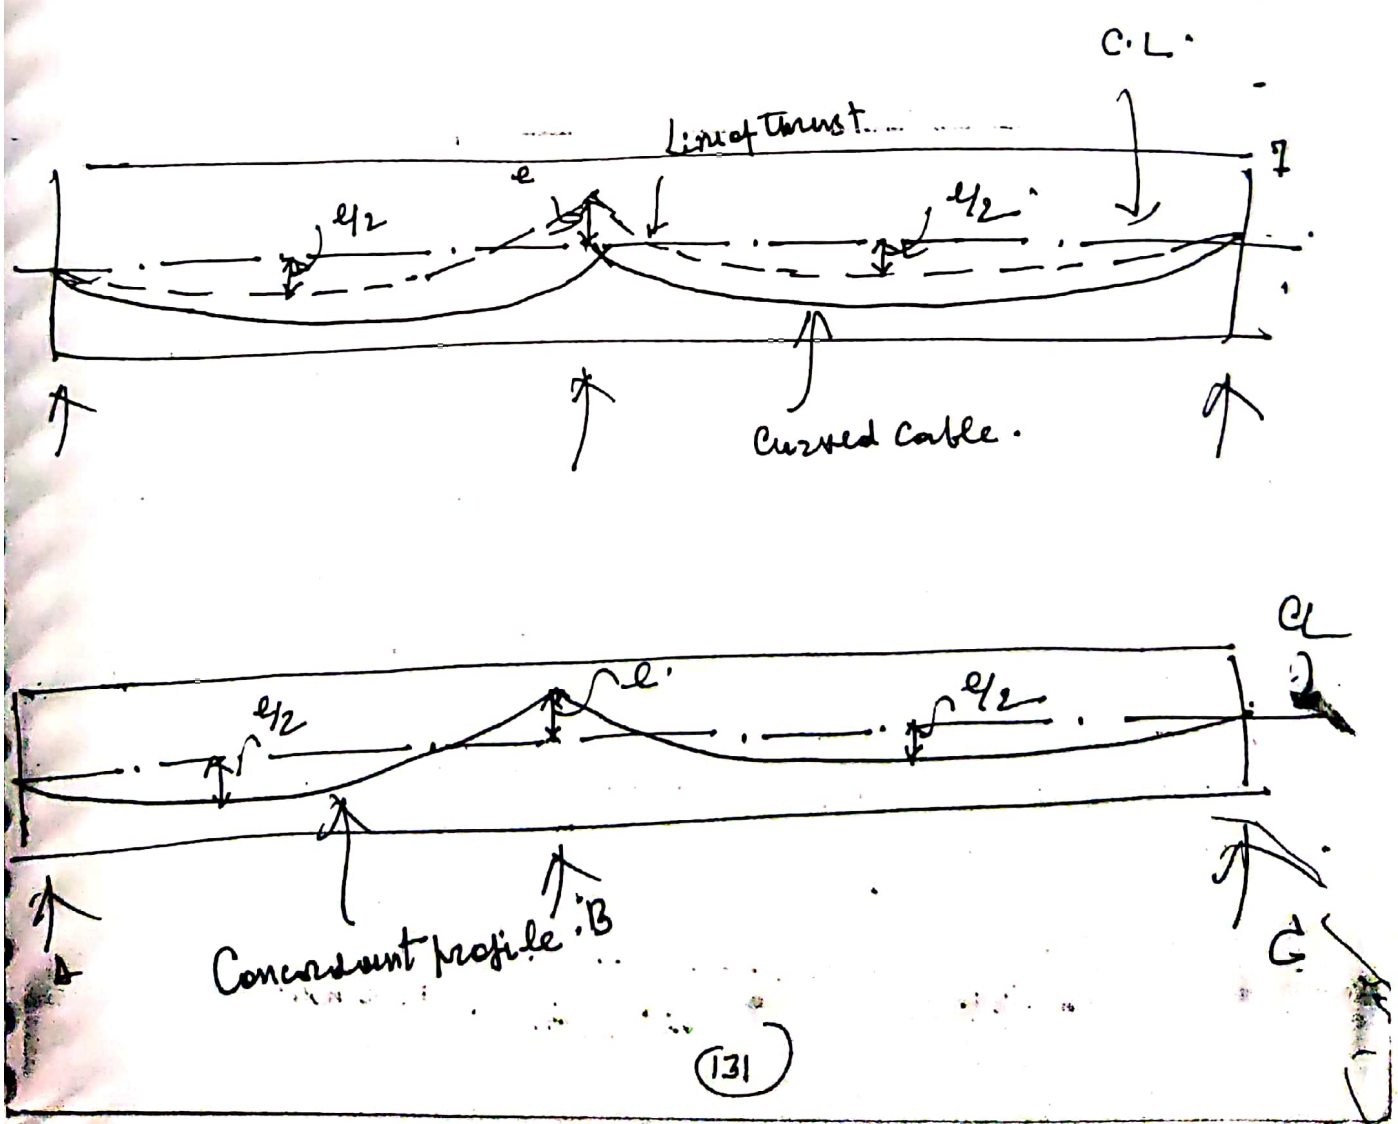 C.L.
Line of Thrust
e
e/2
e/2
Curved Cable.
CL
e
e/2
e/2
A
B
C
Concordant profile.
131